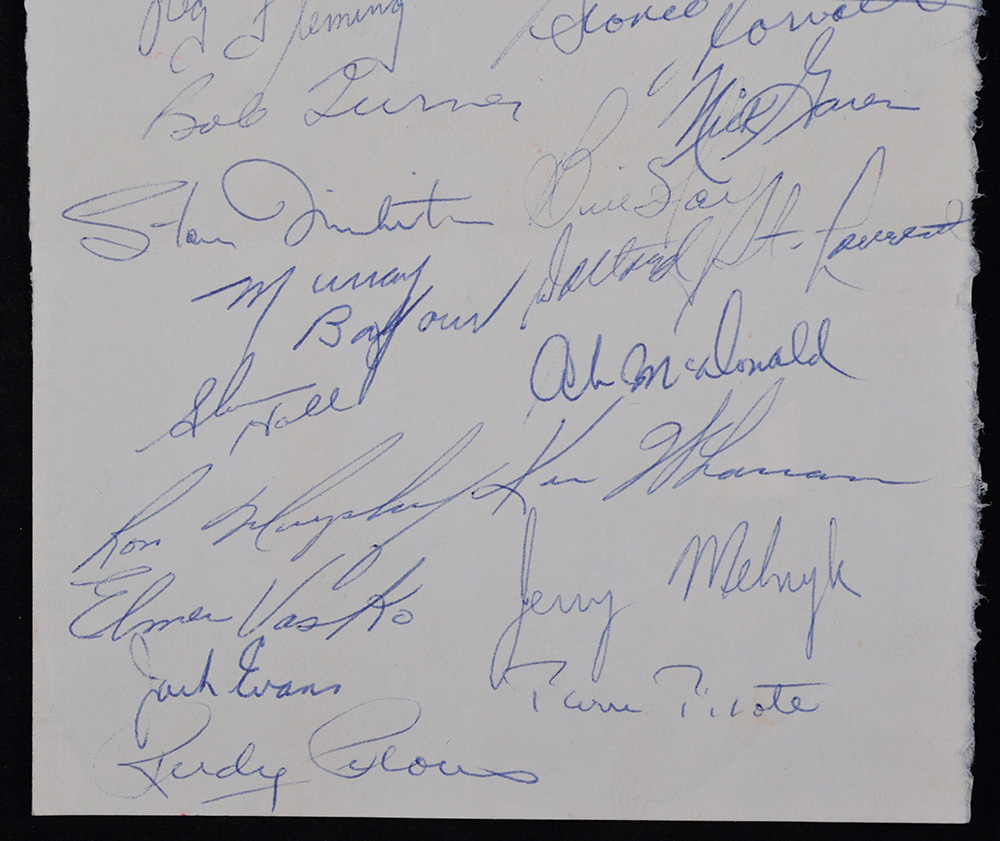 Reg Fleming
Bob Turner
Nick
Stan Mikita
Bill Hay
Murray
Balfour
Dollard St. Laurent
Glenn
Hall
Ab McDonald
Ron Murphy
Ken Wharram
Elmer Vasko
Jerry Melnyk
Jack Evans
Pierre Pilote
Rudy Pilous